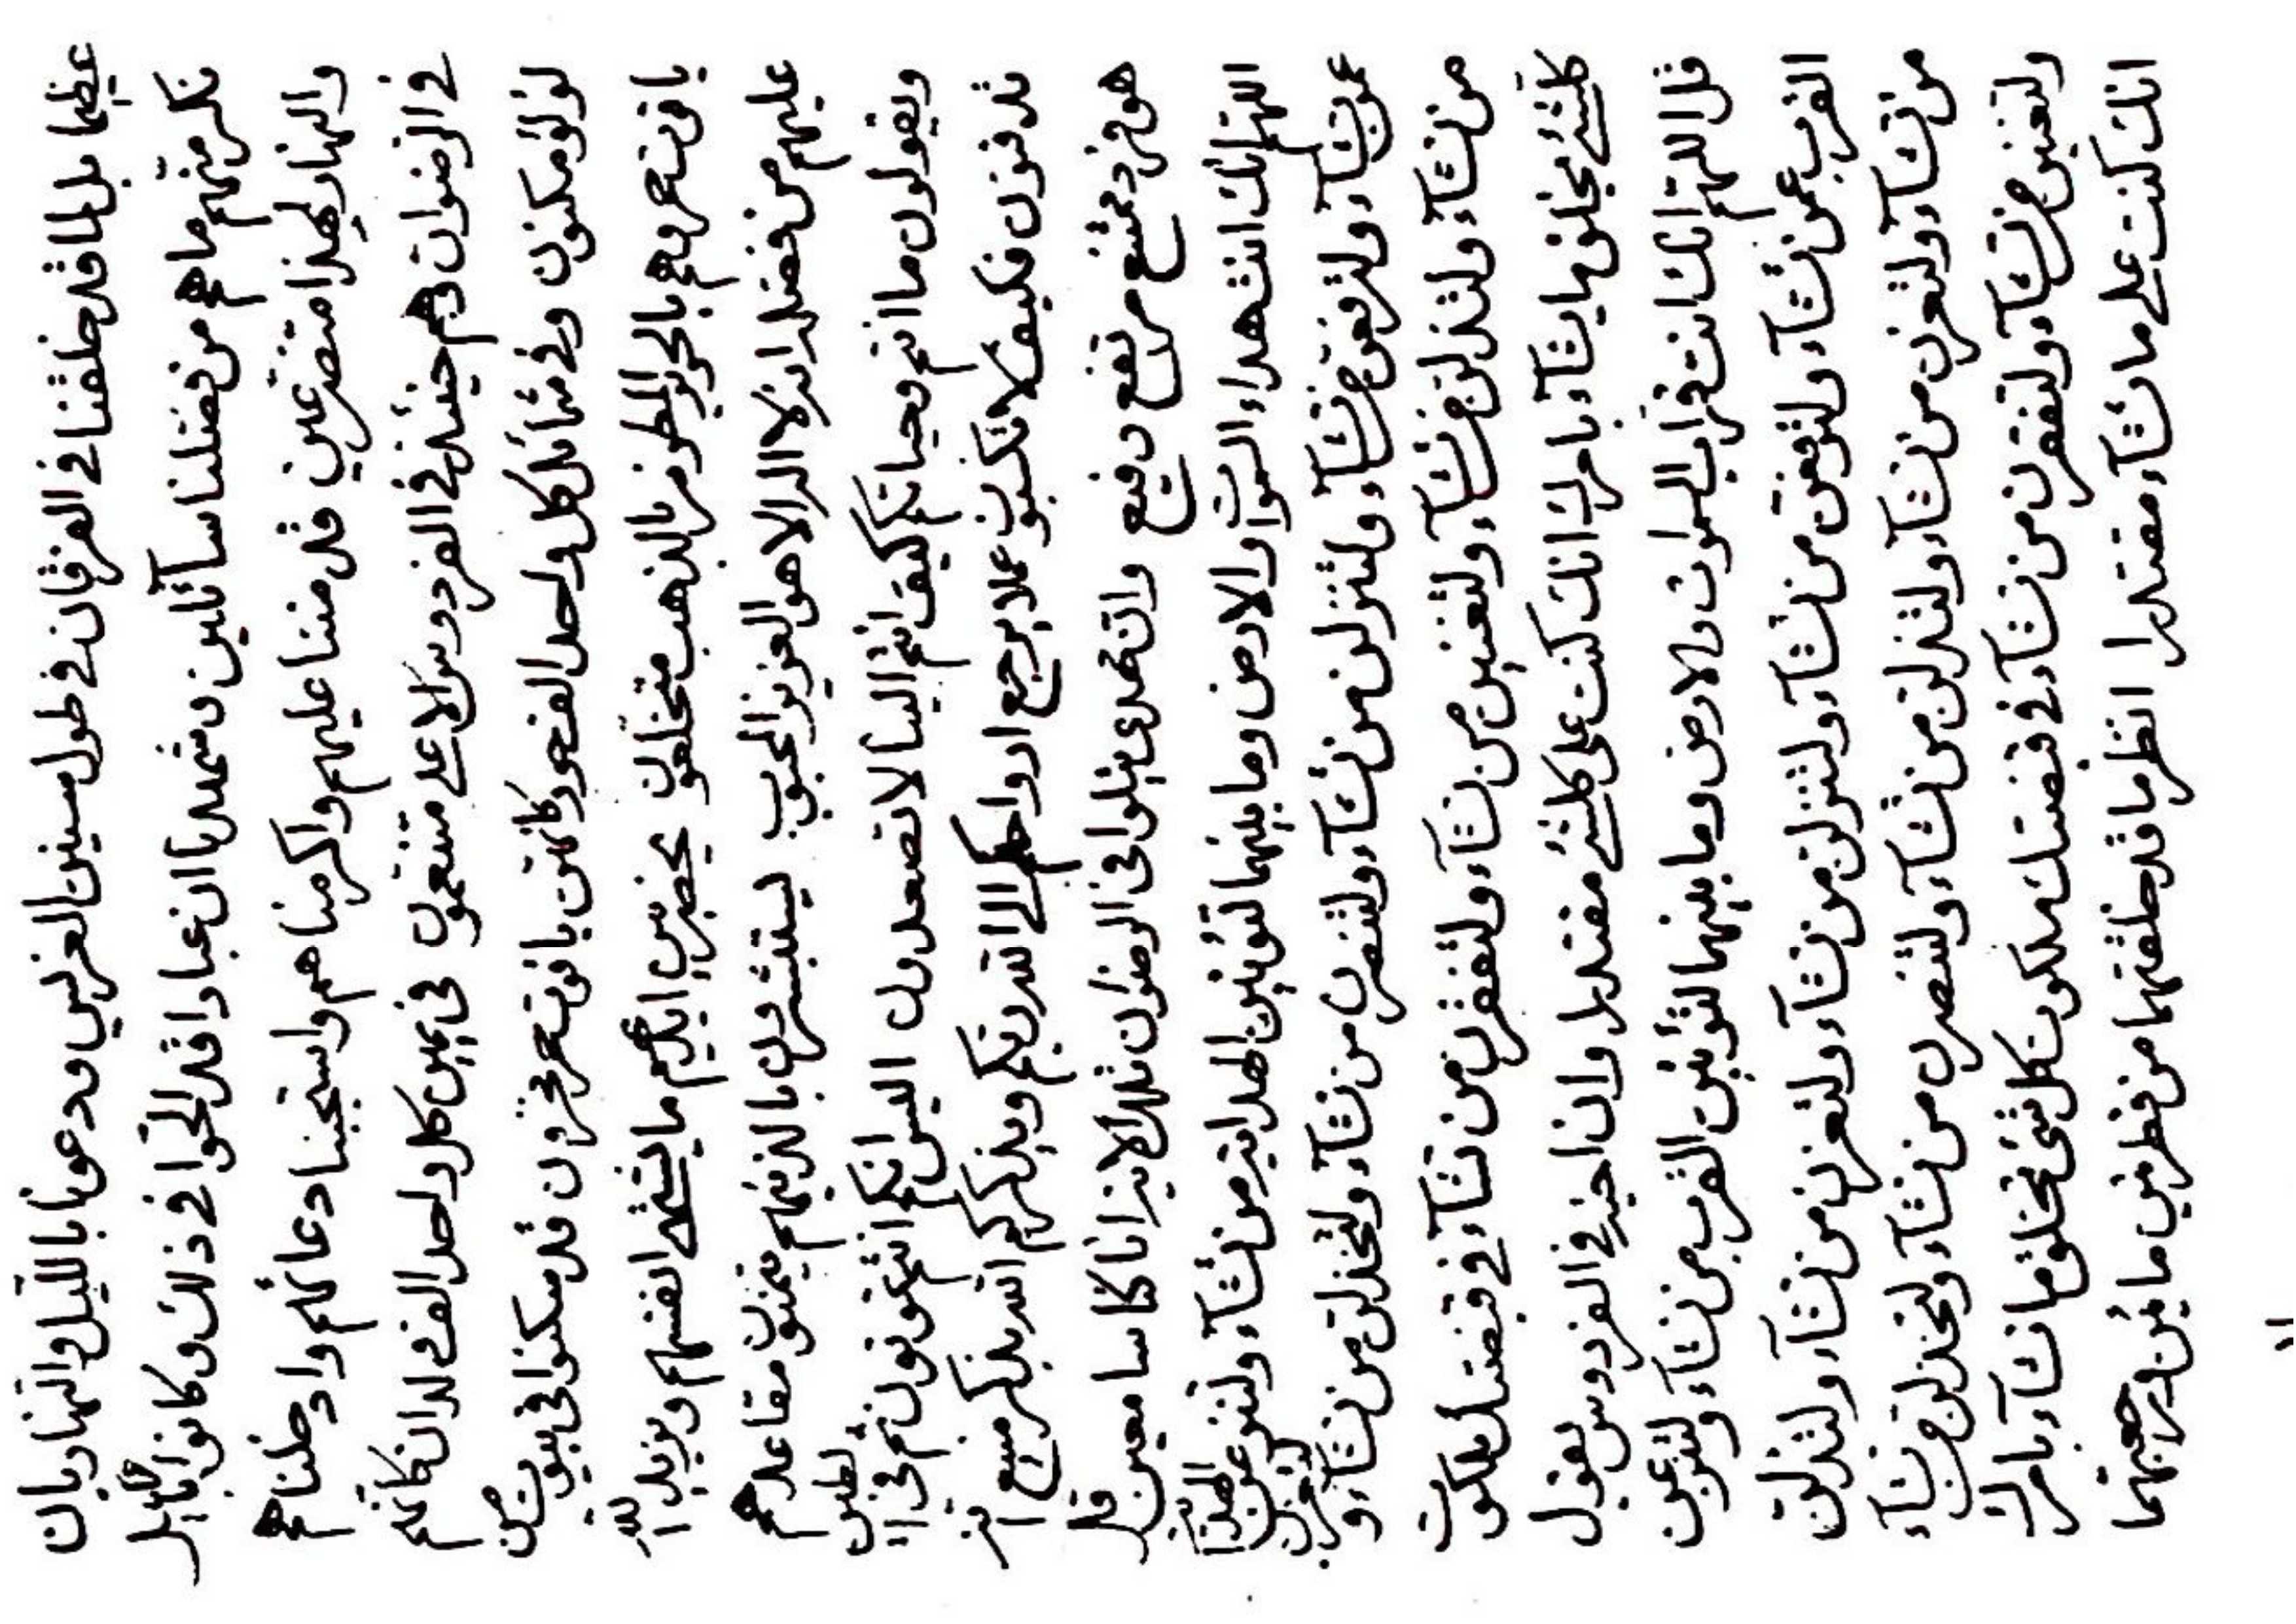 عظيما بل لما قد خلقنا في الفرقان في طول سنين الغرس ودعونا بالليل والنهار بان
نكر منهم ما هم من فضلنا سآئلين وشهدنا ان عبادا قد الحوا في ذلك وكانوا بالليل
والنهار لهذا متضرعين قل مننا عليهم واكرمناهم واستجبنا دعائهم وادخلناهم
في الرضوان وهم حينئذ في الفردوس الاعلى متنعمون في يمين كل واحد الف ولدان كانهم
لؤلؤ مكنون وفي شمائل كل واحد الف حور كانهن ياقوت حمر مخزون قد سكنوا في بيوت من
ياقوت حمر وهم بالحرير المطرز بالذهب متخلعون يحضر بين ايديهم ما يشتهى انفسهم ويزيد الله
عليهم من فضله انه لا اله الا هو العزيز المحبوب ليستبشرون بالذينهم يتمنون مقاعدهم
ويقولون ما انتم وحياتكم كيف انتم الينا لا تصعدون اليس انكم انتم تموتون ثم في الطين
تدفنون فكيف لا تكسبون عملا يرجع ارواحكم الى الله ربكم ويذكركم الله بذكر منيع انه
هو فرد ممتنع مرتفع رفيع وان تحمدى يتلوا في الرضوان تلك الاية انا كنا سامعين قل
اللهم انك انت هداء السموات والارض وما بينهما لتؤتين الهداية من تشآء ولتنزعن الهداية
عمن تشآء ولترفعن من تشآء ولتنزلن من تشآء ولتنصرن من تشآء ولتخذلن من تشآء و لتعزن
من تشآء ولتذلن من تشآء ولتغنين من تشآء ولتفقرن من تشآء في قبضتك ملكوت
كلشئ تخلق ما يشآء بامرك انك كنت على كلشئ مقتدرا وان اخيه في الفردوس يقول
قل اللهم انك انت قراب السموات والارض وما بينهما لتؤتين القرب من تشآء ولتنزعن
القرب عمن تشآء ولترفعن من تشآء ولتنزلن من تشآء ولتعزن من تشآء ولتذلن
من تشآء ولتعزن من تشآء ولتذلن من تشآء ولتنصرن من تشآء ولتخذلن من تشآء
ولتغنين من تشآء ولتفقرن من تشآء في قبضتك ملكوت كل شئ تخلق ما تشآء بامرك
انك كنت على ما تشآء مقتدرا انظر ما قد خلقتهما من فطرتين ما يمن الله رجعتهما